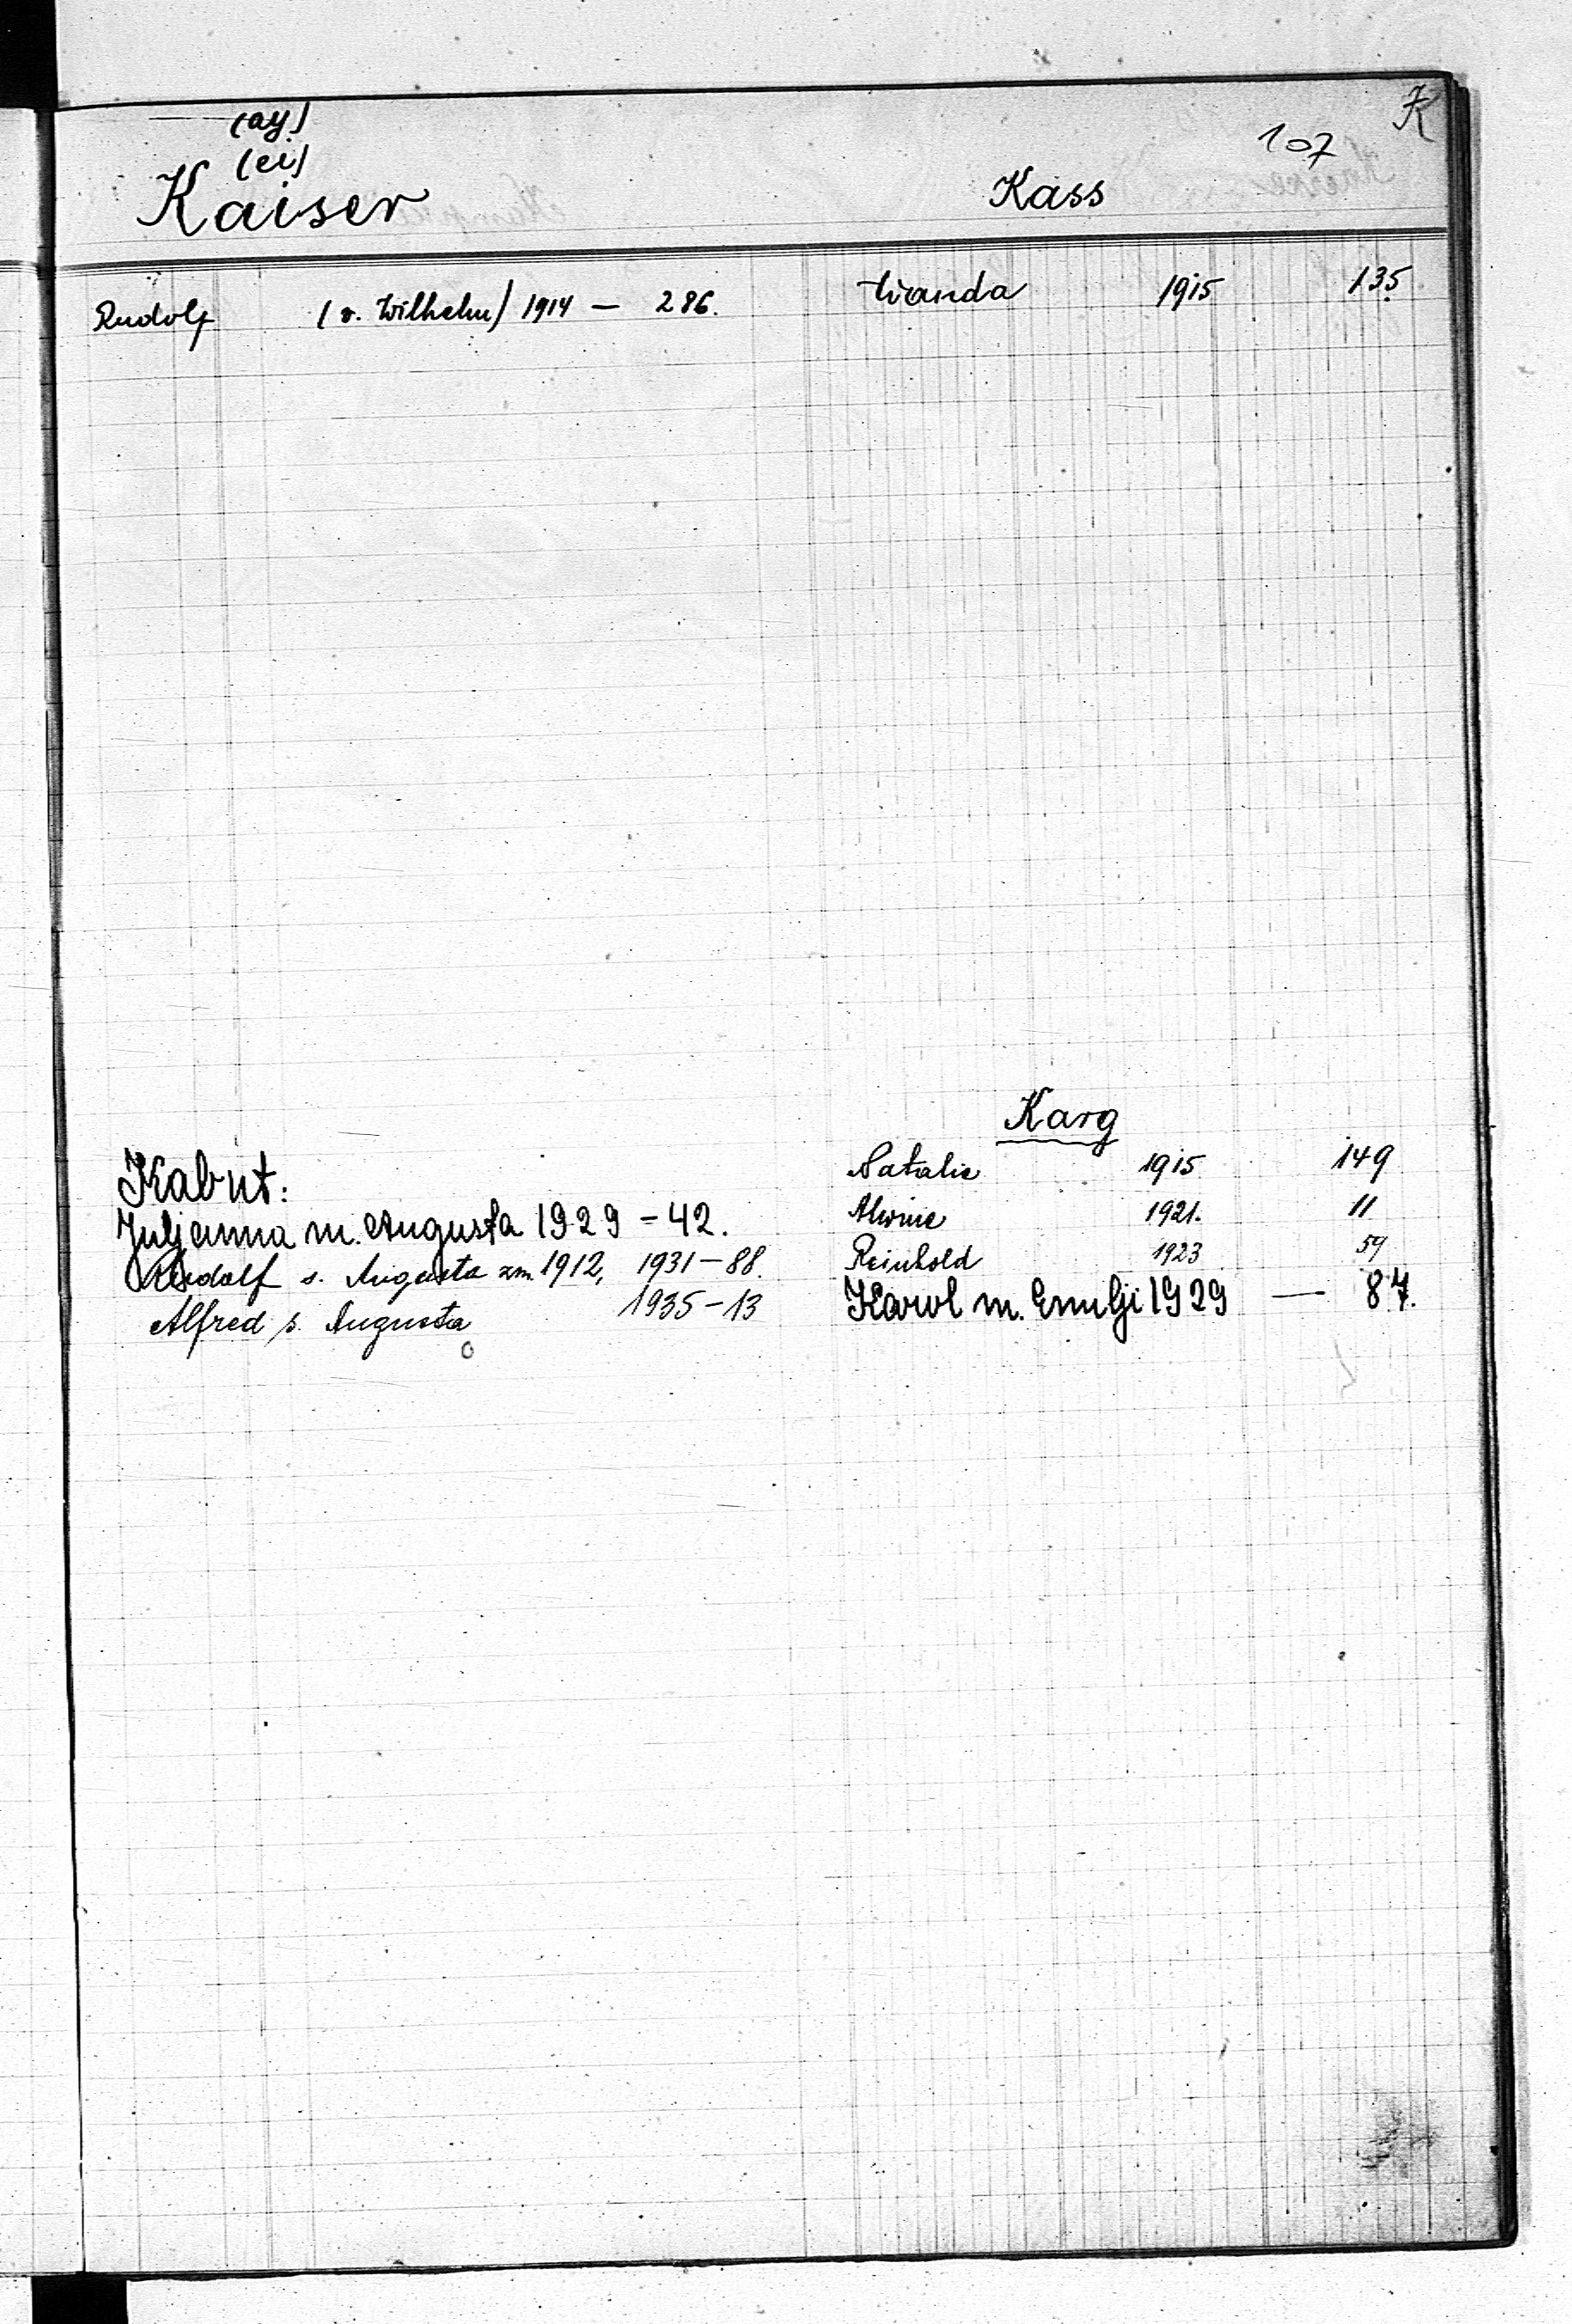 K
107
(ay)
(ei)
Kaiser
Rudolf (v. Wilhelm) 1914 — 286.
Kabut:
Juljanna m. Augusta 1929 - 42.
Rudolf s. Augusta zm. 1912, 1931-88.
Alfred s. Augusta 1935-13
Kass
Wanda 1915 135.
Karg
Natalie 1915 149
Alwine 1921. 11
Reinhold 1923 59
Karol m. Emilji 1929 — 87.